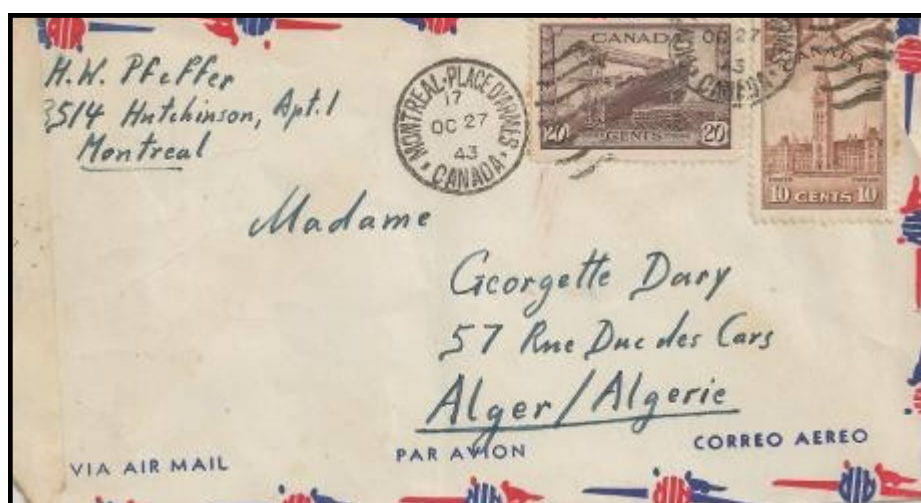 H. W. Pfeffer
3514 Hutchinson, Apt. 1
Montreal
MONTREAL-PLACE D'ARMES
17
OC 27
43
CANADA
CANADA
20 CENTS 20
OC 27
43
CANADA
CANADA
10 CENTS 10
Madame
Georgette Dary
57 Rue Duc des Cars
Alger/Algerie
VIA AIR MAIL
PAR AVION
CORREO AEREO